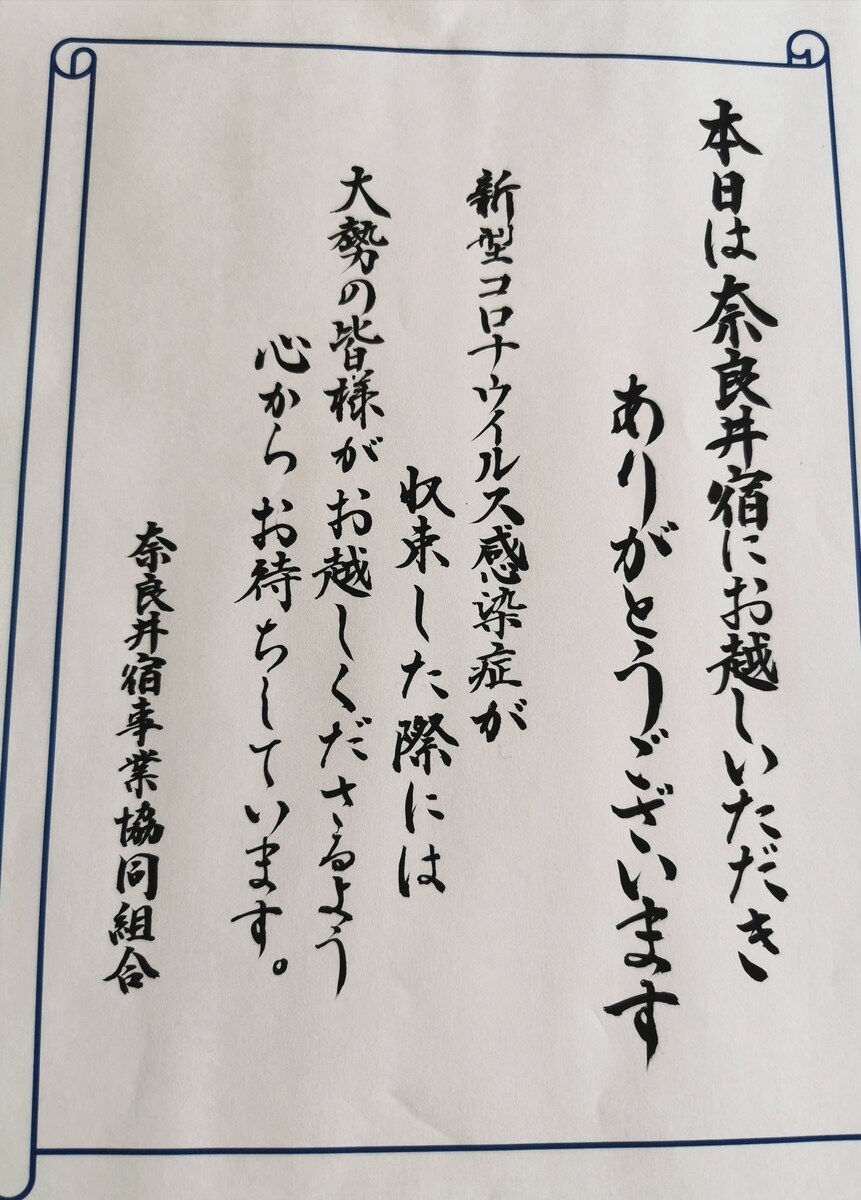 本日は奈良井宿にお越しいただき
ありがとうございます
新型コロナウイルス感染症が
収束した際には
大勢の皆様がお越しくださるよう
心からお待ちしています。
奈良井宿事業協同組合